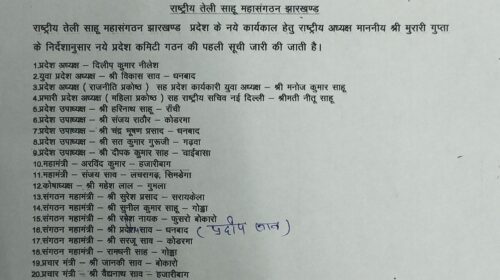 राष्ट्रीय तेली साहू महासंगठन झारखण्ड
राष्ट्रीय तेली साहू महासंगठन झारखण्ड प्रदेश के नये कार्यकाल हेतु राष्ट्रीय अध्यक्ष माननीय श्री मुरारी गुप्ता
के निर्देशानुसार नये प्रदेश कमिटी गठन की पहली सूची जारी की जाती है।
1.प्रदेश अध्यक्ष – दिलीप कुमार नीलेश
2.युवा प्रदेश अध्यक्ष – श्री विकास साव – धनबाद
3.प्रदेश अध्यक्ष ( राजनीति प्रकोष्ठ ) सह प्रदेश कार्यकारी युवा अध्यक्ष – श्री मनोज कुमार साहू
4.प्रभारी प्रदेश अध्यक्ष ( महिला प्रकोष्ठ ) सह राष्ट्रीय सचिव नई दिल्ली – श्रीमती नीतू साहू
5.प्रदेश उपाध्यक्ष – श्री हरिनाथ साहू – राँची
6.प्रदेश उपाध्यक्ष – श्री संजय राठौर – कोडरमा
7.प्रदेश उपाध्यक्ष – श्री चंद्र भूषण प्रसाद – धनबाद
8.प्रदेश उपाध्यक्ष – श्री सत कुमार गुरूजी – गढ़वा
9.प्रदेश उपाध्यक्ष – श्री दीपक कुमार साह – चाईबासा
10.महामंत्री – अरविंद कुमार – हजारीबाग
11.महामंत्री – संजय साव – लचरागढ़, सिमडेगा
12.कोषाध्यक्ष – श्री महेश लाल – गुमला
13.संगठन महामंत्री – श्री सुरेश प्रसाद – सरायकेला
14.संगठन महामंत्री – श्री सुनील कुमार साहू – गोड्डा
15.संगठन महामंत्री – श्री रमेश नायक – फुसरो बोकारो
16.संगठन महामंत्री – श्री साव – धनबाद (प्रदीप साव)
17.संगठन महामंत्री – श्री सरजू साव – कोडरमा
18.संगठन महामंत्री – रामधनी साह – गोड्डा
19.प्रचार मंत्री – श्री जानकी साव – बोकारो
20.प्रचार मंत्री – श्री वैद्यनाथ साव – हजारीबाग